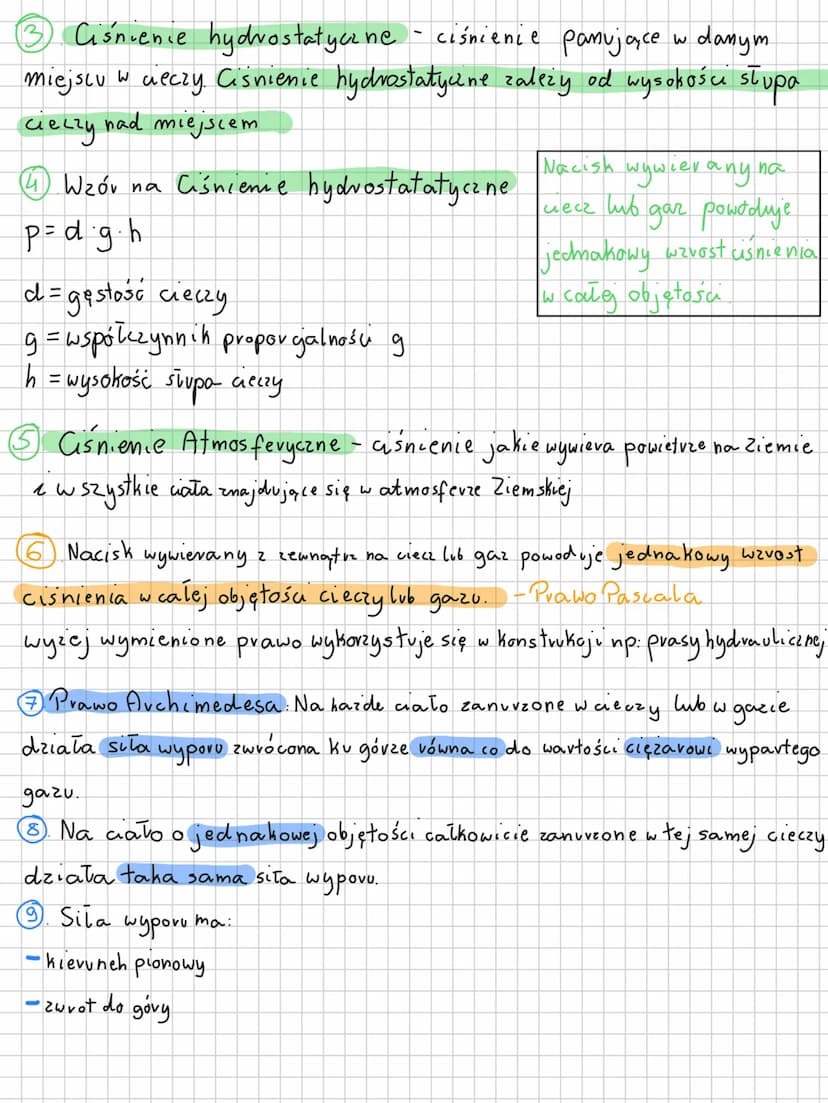 3 Ciśnienie hydrostatyczne - ciśnienie panujące w danym
miejscu w cieczy. Ciśnienie hydrostatyczne zależy od wysokości słupa
cieczy nad miejscem
4 Wzór na Ciśnienie hydrostatatyczne
p = d · g · h
d = gęstość cieczy
g = współczynnik proporcjalności g
h = wysokość słupa cieczy
Nacisk wywierany na
ciecz lub gaz powoduje
jednakowy wzrost ciśnienia
w całej objętości.
5 Ciśnienie Atmosferyczne - ciśnienie jakie wywiera powietrze na Ziemie
i wszystkie ciała znajdujące się w atmosferze Ziemskiej
6. Nacisk wywierany z zewnątrz na ciecz lub gaz powoduje jednakowy wzrost
ciśnienia w całej objętości cieczy lub gazu. - Prawo Pascala
wyżej wymienione prawo wykorzystuje się w konstrukcji np: prasy hydraulicznej
7 Prawo Archimedesa: Na każde ciało zanurzone w cieczy lub w gazie
działa siła wyporu zwrócona ku górze równa co do wartości ciężarowi wypartego
gazu.
8. Na ciało o jednakowej objętości całkowicie zanurzone w tej samej cieczy
działa taka sama siła wyporu.
9. Siła wyporu ma:
- kierunek pionowy
- zwrot do góry